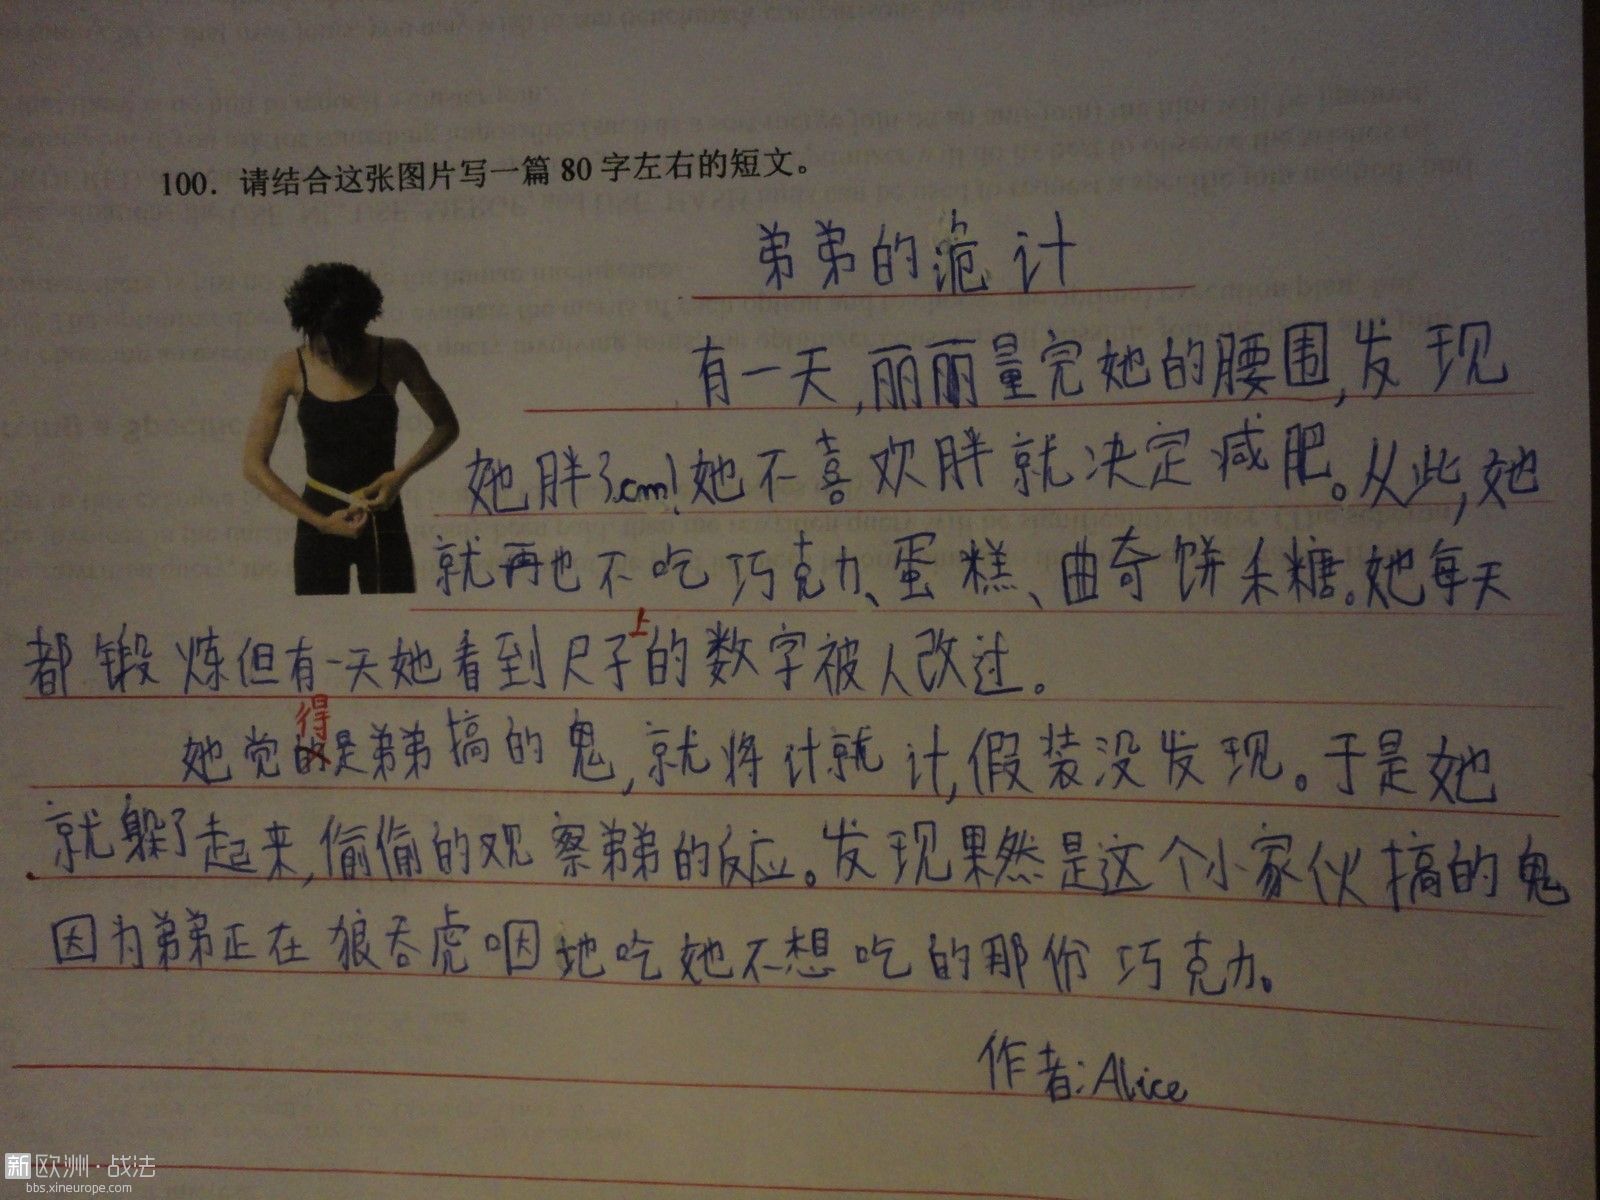 100. 请结合这张图片写一篇 80 字左右的短文。
弟弟的诡计
有一天,丽丽量完她的腰围,发现
她胖了cm!她不喜欢胖就决定减肥。从此,她
就再也不吃巧克力、蛋糕、曲奇饼禾糖。她每天
都锻炼但有一天她看到尺子上的数字被人改过。
她觉得是弟弟搞的鬼,就将计就计,假装没发现。于是她
就躲了起来,偷偷的观察弟弟的反应。发现果然是这个小家伙搞的鬼
因为弟弟正在狼吞虎咽地吃她不想吃的那份巧克力。
作者:Alice
新欧洲·战法
bbs.xineurope.com